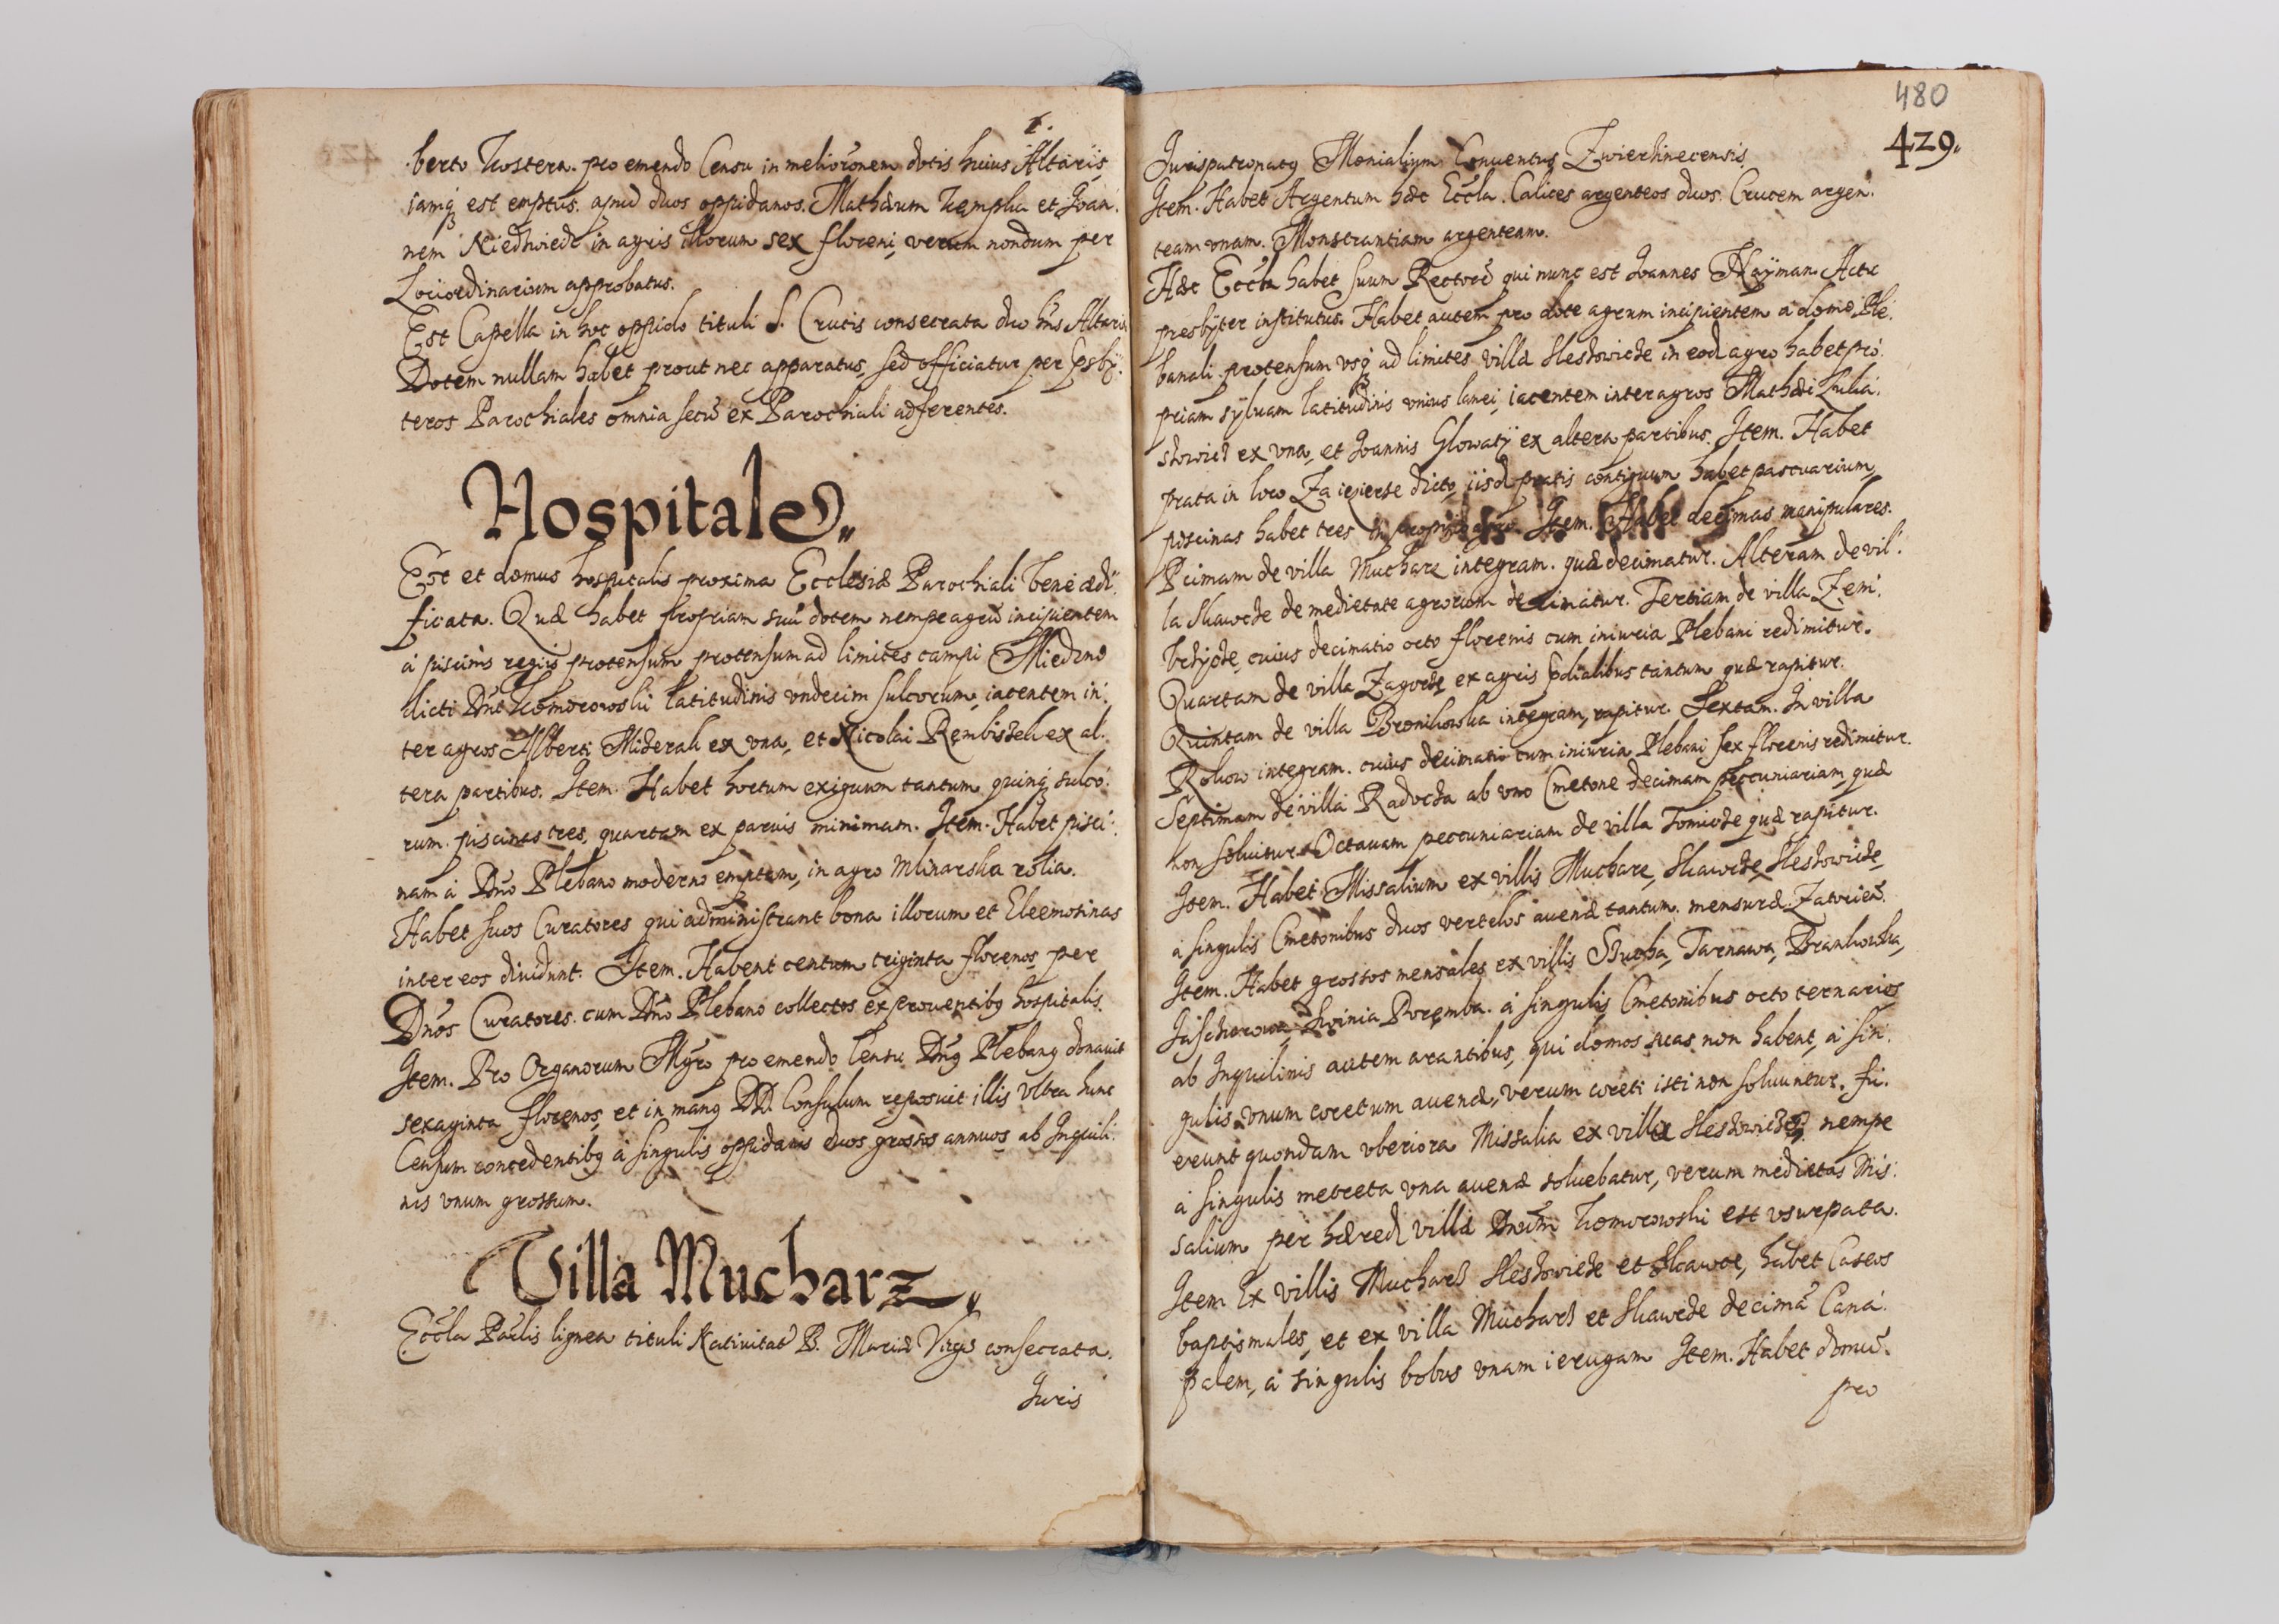 berto Kostera. pro emendo Censu in meliorōnem dotis huius Altaris,
iamq̃ est emptus. apud duos oppidanos. Mathæum Kempka et Joan:
nem Niedzwiedz in agris illorum sex floreni, verum nondum per
Lociordinarium approbatus.
Est Capella in hoc oppido tituli S. Crucis consecrata duo hñs Altaria
Dotem nullam habet prout nec apparatus, sed officiatur per Psby:
teros Parochiales omnia secū ex Parochiali adferentes.
Hospitale
Est et domus hospitalis proxima Ecclesiæ Parochiali bene ædi:
ficata. Quæ habet propriam suū dotem nempe agrū incipientem
à piscinis regiis protensum protensum ad limites campi Miedzne
dicti Dñi Komorowski latitudinis vndecim sulcorum, iacentem in:
ter agros Alberti Miderak ex vna, et Nicolai Rembiszek ex al:
tera partibus. Item. Habet hortum exiguum tantum quinq̃ sulco:
rum. piscinas tres, quartam ex paruis minimam. Item. Habet pisci:
nam à Dño Plebano moderno emptam, in agro Mlinarska rolia.
Habet suos Curatores qui administrant bona illorum et Eleemosinas
inter eos diuidunt. Item. Habent centum triginta florenos per
Dños Curatores. cum Dño Plebano collectos ex prouentibq hospitalis.
Item. Pro Organorum Mgro pro emendo Censu Dñq Plebanq donauit
sexaginta florenos, et in manq DD. Consulum reposuit illis vltra hunc
Censum concedentibq à singulis oppidanis duos grossos annuos ab Inquili:
nis vnum grossum.
Villa Mucharz
Eccła Pārlis lignea tituli Natiuitat̃ B. Mariæ Virgīs consecrata.
Juris
480
429.
Jurispatronatq Monialium Conuentus Zwierhinecensis.
Item. Habet Argentum hæc Eccła. Calices argenteos duos. Crucem argen:
team vnam. Monstrantiam argenteam.
Hæc Eccła habet suum Rectorē qui nunc est Joannes Nayman Actu
presbyter institutus. Habet autem pro dote agrum incipientem à domo Ple:
banali. protensum vsq̃ ad limites villæ Sleszowicze in eod agro habet pro:
priam syluam latitudinis vnius lanei, iacentem inter agros Mathæi Lulia:
szowicz ex vna, et Joannis Glowaty ex altera partibus. Item. Habet
prata in loco Za ieziersze dicto, iisd pratis contiguum habet pascuarium,
piscinas habet tres in proprio agro. Item. Habet decimas manipulares.
Primam de villa Mucharz integram. quæ decimatur. Alteram de vil:
la Skawcze de medietate agrorum decimatur. Tertiam de villa Zem:
brzycze, cuius decimatio octo florenis cum iniuria Plebani redimitur.
Quartam de villa Zagorze ex agris prædialibus tantum quæ rapitur.
Quintam de villa Bronikowska integram, rapitur. Sextam. In villa
Rokow integram. cuius decimatio cum iniuria Plebani sex florenis redimitur.
Septimam de villa Radocza ab vno Cmetone decimam peccuniariam quæ
non soluitur. Octauam peccuniariam de villa Tomicze quæ rapitur.
Item. Habet Missalium ex villis Mucharz, Skawcze, Sleszowicze,
à singulis Cmetonibus duos vertelos auenæ tantum. mensuræ Zatorieñ.
Item. Habet grossos mensales ex villis Sucha, Tarnawa, Brankowka,
Jaschorowa, Swinia Poremba. à singulis Cmetonibus octo ternarios,
ab Inquilinis autem arantibus, qui domos suas non habent, à sin:
gulis vnum coretum auenæ, verum coreti isti non soluuntur. fu:
erunt quondam vberiora Missalia ex villa Sleszowicze, nempe
à singulis metreta vna auenæ soluebatur, verum medietas Mis:
salium per hæred villæ Dnum Komorowski est vsurpata.
Item Ex villis Mucharz Sleszowicze et Skawce, habet Caseos
baptismales, et ex villa Mucharz et Skawcze decimā Cana:
palem, à singulis bobus vnam ierugam Item. Habet domū.
pro